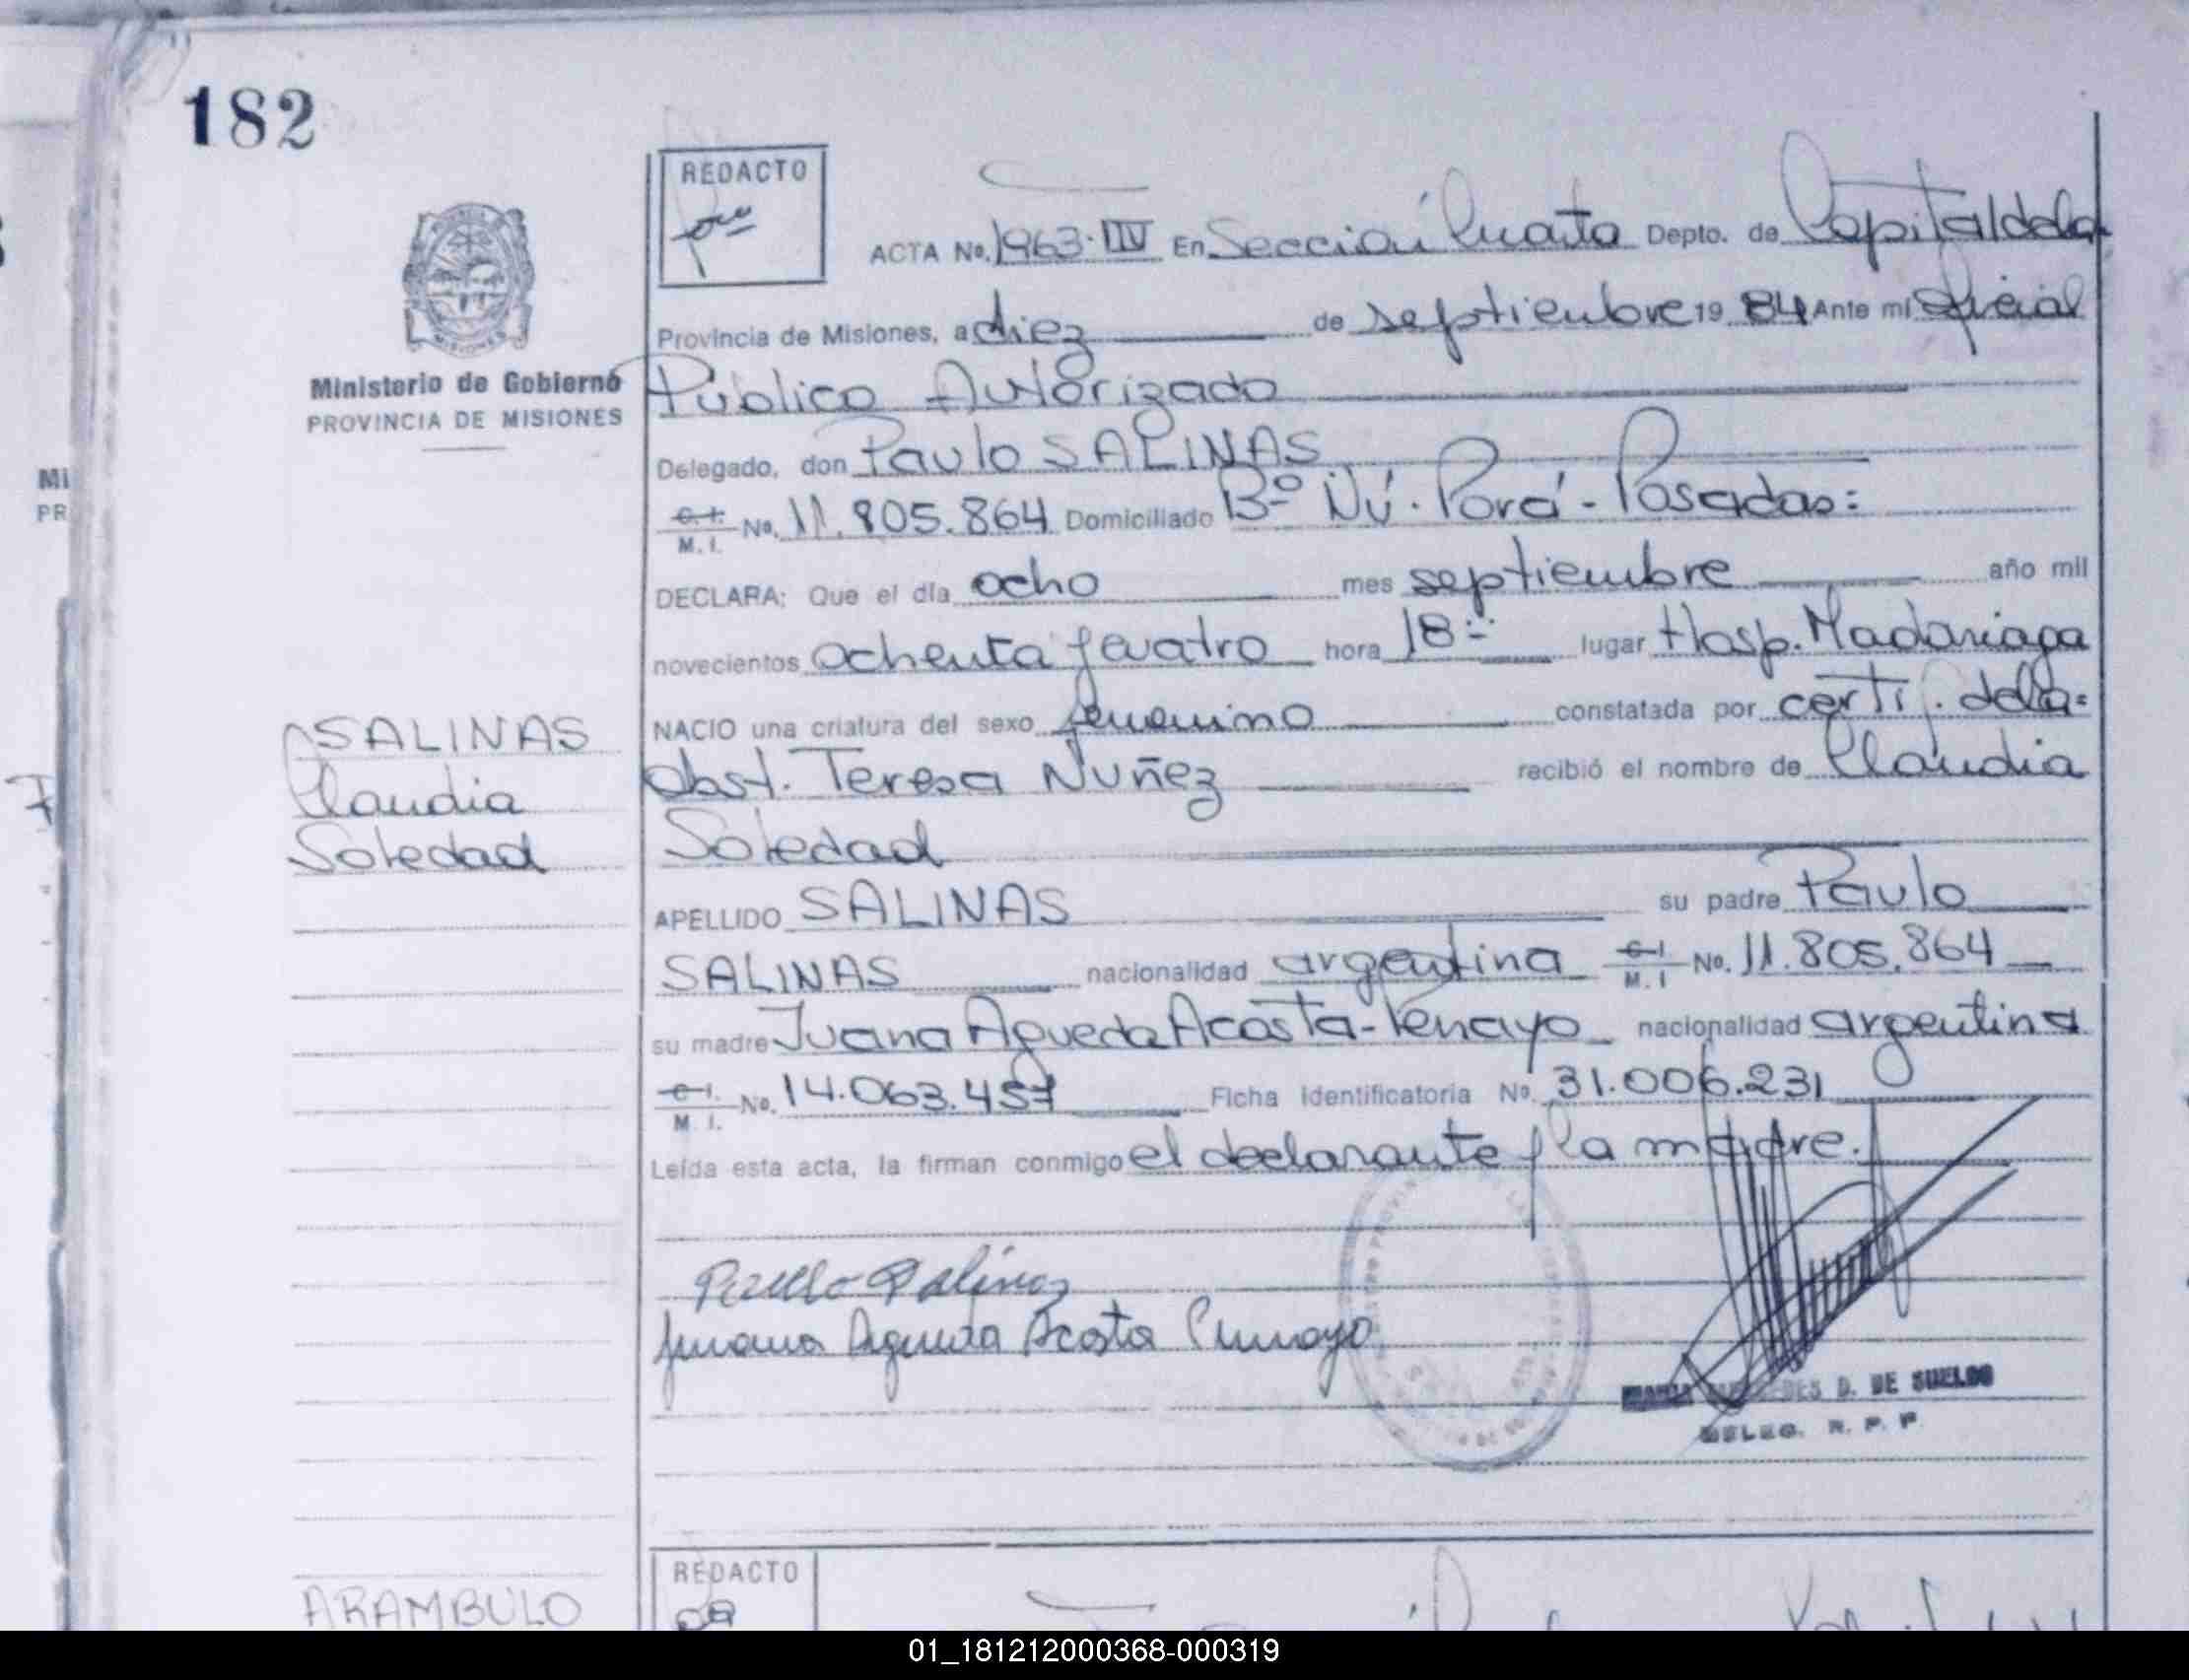 182
REDACTO
ACTA No. 1963-IV En Sección Cuarta Depto. de Capital de la
Provincia de Misiones, a diez de septiembre 19 84 Ante mí Oficial
Ministerio de Gobierno
PROVINCIA DE MISIONES
Público Autorizado
Delegado, don Paulo SALINAS
C. I. M. I. No. 11.805.864 Domiciliado Bº Ñú-Porá-Posadas=
DECLARA: Que el día ocho mes septiembre año mil
novecientos ochenta y cuatro hora 18= lugar Hosp. Madariaga
NACIO una criatura del sexo femenino constatada por certif. de la=
Obst. Teresa Nuñez recibió el nombre de Claudia
Soledad
SALINAS
Claudia
Soledad
APELLIDO SALINAS su padre Paulo
SALINAS nacionalidad argentina C. I. M. I No. 11.805.864
su madre Juana Agueda Acosta-Penayo nacionalidad argentina
C. I. M. I. No. 14.063.457 Ficha identificatoria No. 31.006.231
Leída esta acta, la firman conmigo el declarante y la madre.
Paulo Salinas
Juana Agueda Acosta Penayo
D. DE SUELDO
DELEG. R. P. P.
REDACTO
ARAMBULO
Mi
PR
01_181212000368-000319